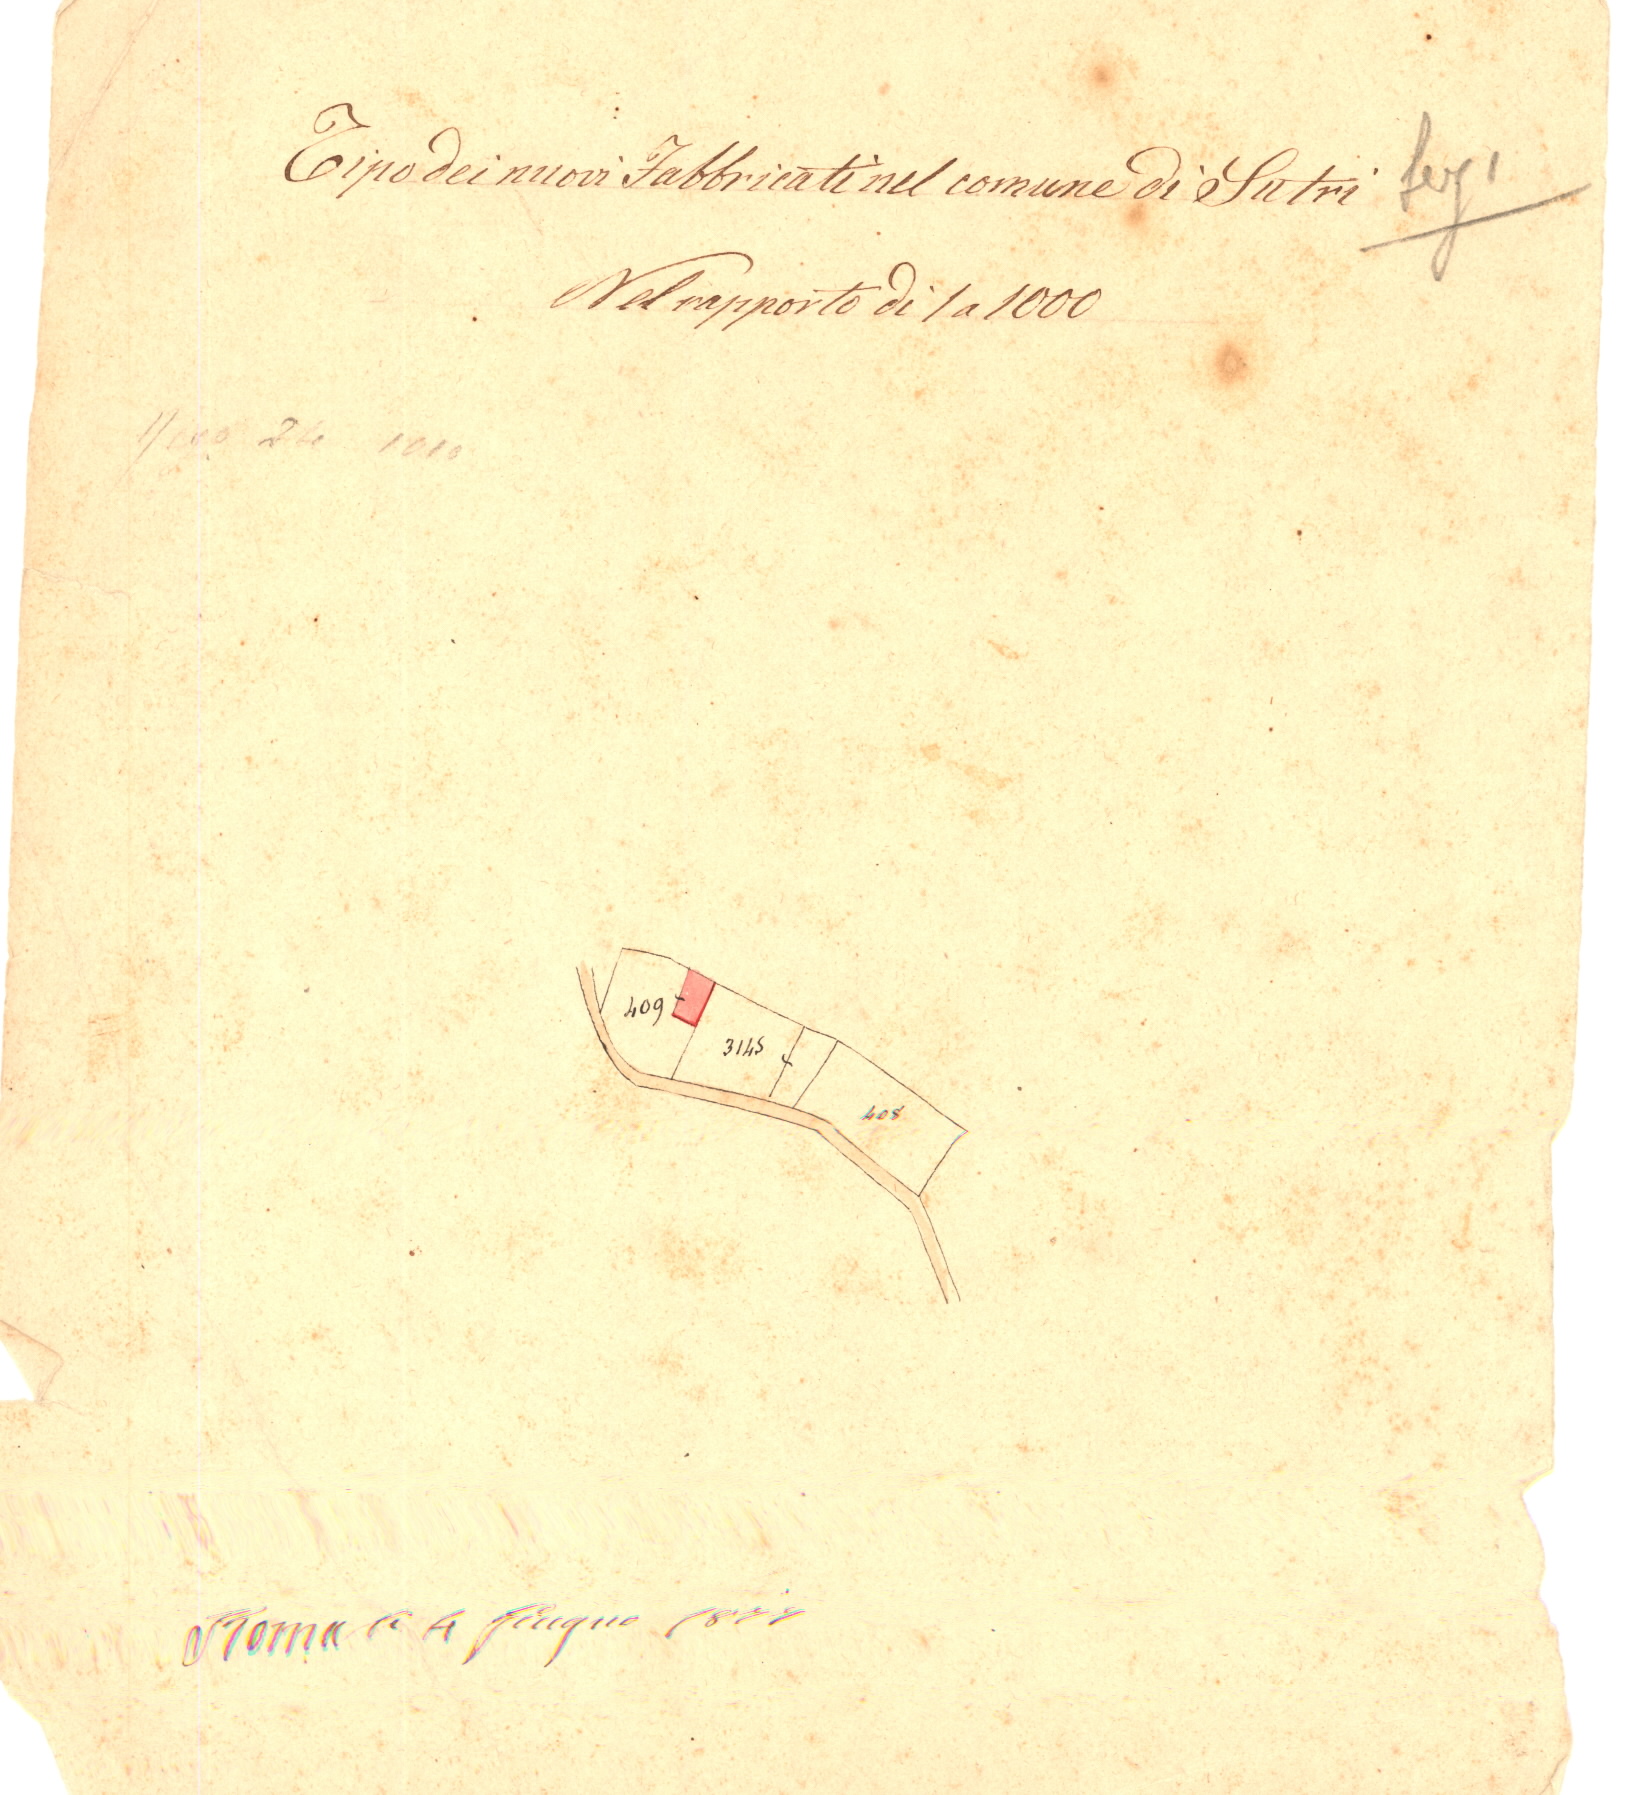 Tipo dei nuovi Fabbricati nel comune di Sutri
Nel rapporto di 1 a 1000
409
3145
408
Roma li 4 Giugno 1877